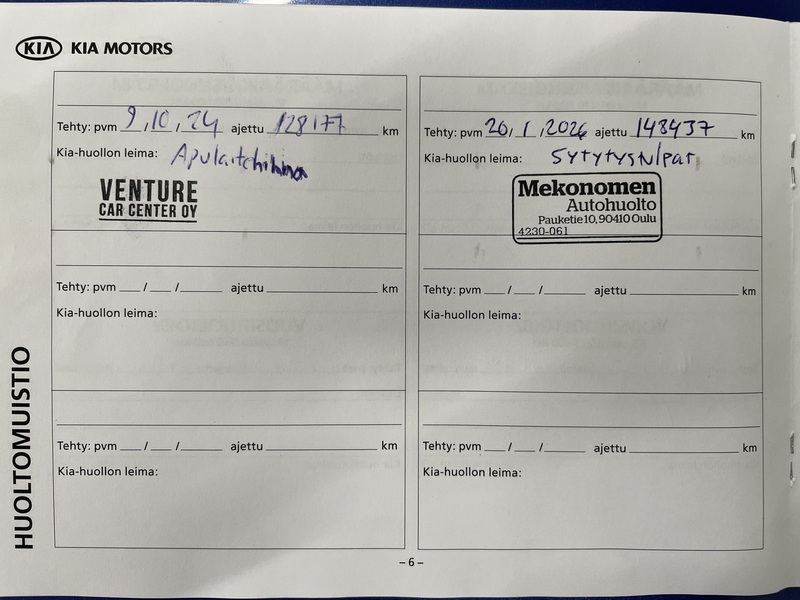 KIA KIA MOTORS
Tehty: pvm 9,10,24 ajettu 128177 km
Kia-huollon leima: Apulaitehihna
VENTURE
CAR CENTER OY
Tehty: pvm ___/___/_____ ajettu __________ km
Kia-huollon leima:
Tehty: pvm ___/___/_____ ajettu __________ km
Kia-huollon leima:
Tehty: pvm 20, 1, 2026 ajettu 148437 km
Kia-huollon leima: Sytytystulpat
Mekonomen
Autohuolto
Pauketie 10, 90410 Oulu
4230-061
Tehty: pvm ___/___/_____ ajettu __________ km
Kia-huollon leima:
Tehty: pvm ___/___/_____ ajettu __________ km
Kia-huollon leima:
HUOLTOMUISTIO
– 6 –